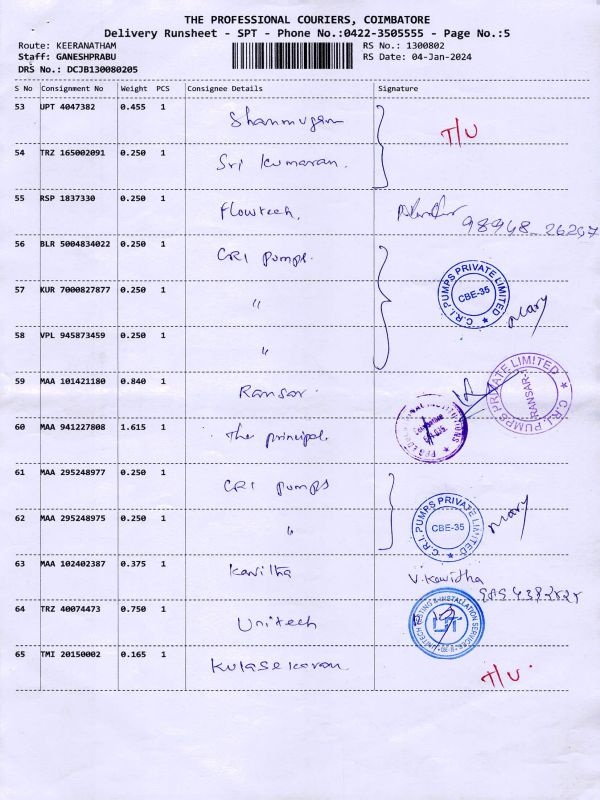 THE PROFESSIONAL COURIERS, COIMBATORE
Delivery Runsheet - SPT - Phone No.:0422-3505555 - Page No.:5
Route: KEERANATHAM RS No.: 1300802
Staff: GANESHPRABU RS Date: 04-Jan-2024
DRS No.: DCJB130080205
S No Consignment No Weight PCS Consignee Details Signature
53 UPT 4047382 0.455 1 Shanmugam T/U
54 TRZ 165002091 0.250 1 Sri Kumaran.
55 RSP 1837330 0.250 1 Flowtech. 98948-26207
56 BLR 5004834022 0.250 1 CRI Pumps.
57 KUR 7000827877 0.250 1 " C.R.I. PUMPS PRIVATE LIMITED CBE-35 Mary
58 VPL 945873459 0.250 1 "
59 MAA 101421180 0.840 1 Ransar. C.R.I. PUMPS PRIVATE LIMITED RANSAR
60 MAA 941227808 1.615 1 The principal.
61 MAA 295248977 0.250 1 CRI pumps
62 MAA 295248975 0.250 1 " C.R.I. PUMPS PRIVATE LIMITED CBE-35 Mary
63 MAA 102402387 0.375 1 Kavitha V. Kavidha
64 TRZ 40074473 0.750 1 Unitech UNITECH TESTING & INSTALLATION SERVICES
65 TMI 20150002 0.165 1 Kulasekaran T/U.